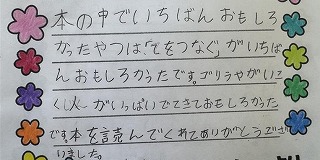 本の中でいちばんおもしろ
かったやつは「てをつなぐ」がいちば
んおもしろかったです。ゴリラやがいこ
く人がいっぱいでてきておもしろかった
です。本を読んでくれてありがとうござ
いました。